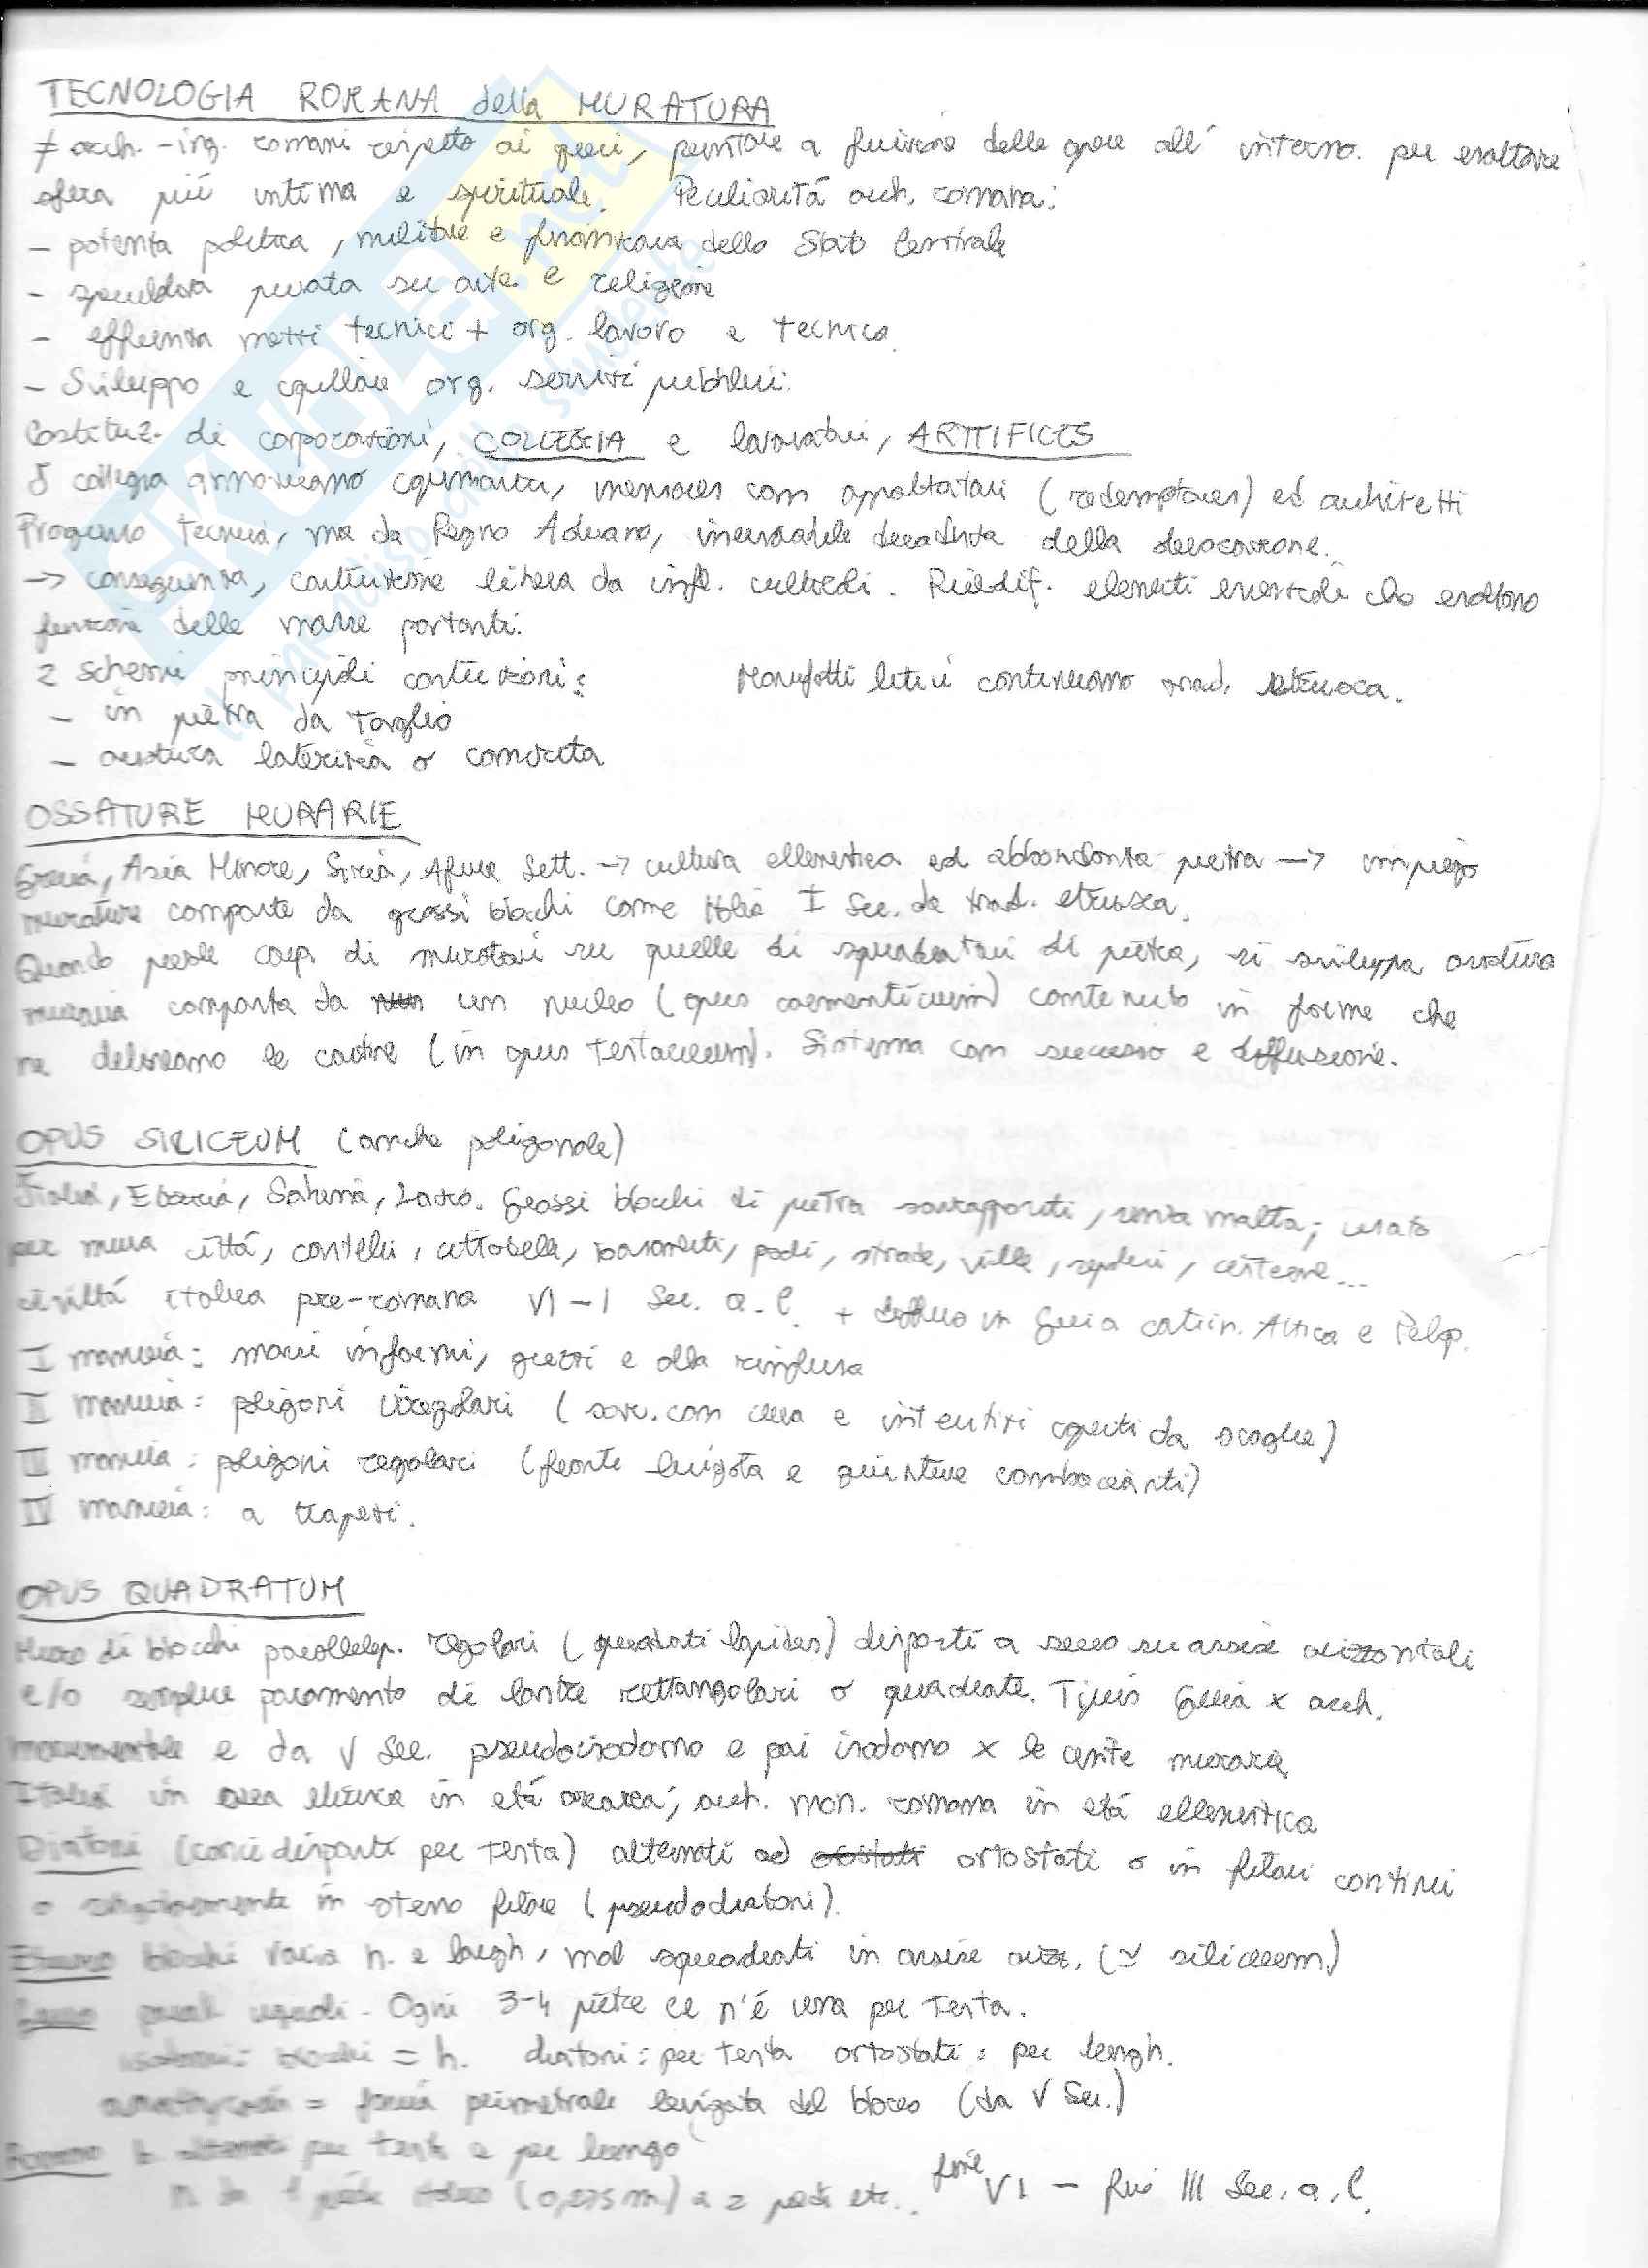 TECNOLOGIA ROMANA della MURATURA
≠ arch. - ing. romani rispetto ai greci, puntare a funzione delle opere all'interno. per esaltare
sfera più intima e spirituale. Peculiarità arch. romana:
- potenza politica, militare e finanziaria dello Stato Centrale
- privata su arte e religione
- efficienza mezzi tecnici + org. lavoro e tecnica.
- Sviluppo e capillare org. servizi pubblici:
Costituz. di corporazioni, COLLEGIA e lavoratori, ARTIFICES
I collegia annoveravano mensores con appaltatori (redemptores) ed architetti
Progresso tecnico, ma da Regno Adriano, inesorabile decadenza della decorazione.
-> conseguenza, costruzione libera da infl. culturali. Riedif. elementi essenziali che esaltano
funzione delle masse portanti.
2 schemi principali costruzioni: Manufatti litici continuano trad. etrusca.
- in pietra da taglio
- ossatura laterizia o concreta
OSSATURE MURARIE
Grecia, Asia Minore, Siria, Africa Sett. -> cultura ellenistica ed abbondanza pietra -> impiego
murature composte da grossi blocchi come Italia I Sec. da trad. etrusca.
Quando prevale corp. di muratori su quelle di squadratori di pietra, si sviluppa ossatura
muraria composta da un nucleo (opus caementicium) contenuto in forme che
ne delineano le cortine (in opus testaceum). Sistema con successo e diffusione.
OPUS SILICEUM (anche poligonale)
Italia, Etruria, Sabina, Lazio. Grossi blocchi di pietra sovrapposti, senza malta; usato
per mura città, castelli, cittadelle, basamenti, podi, strade, ville, sepolcri, cisterne...
civiltà italica pre-romana VI - I Sec. a.C. + diffuso in Grecia contin. Attica e Pelop.
I maniera: massi informi, grezzi e alla rinfusa
II maniera: poligoni irregolari (sovr. con cura e interstizi coperti da scaglie)
III maniera: poligoni regolari (fronte levigata e giunture combacianti)
IV maniera: a trapezi.
OPUS QUADRATUM
Muro di blocchi parallelep. regolari (quadrati lapides) disposti a secco su assise orizzontali
e/o semplice paramento di lastre rettangolari o quadrate. Tipico Grecia x arch.
monumentale e da V Sec. pseudoisodomo e poi isodomo x le cinte murarie
Italia in area etrusca in età arcaica, arch. mon. romana in età ellenistica
Diatoni (conci disposti per testa) alternati ad ortostati o in filari continui
o singolarmente in stesso filare (pseudodiatoni).
Etrusco blocchi varia h. e largh, mal squadrati in assise orizz. (≃ siliceum)
Greco quasi uguali - Ogni 3-4 pietre ce n'è una per testa.
isodomi: blocchi = h. diatoni: per testa ortostati: per lungh.
anathyrosis = fascia perimetrale levigata del blocco (da V Sec.)
Romano b. alternati per testa e per lungo
h da 1 piede (0,275 m) a 2 piedi etc.. fine VI - fine III Sec. a.C.